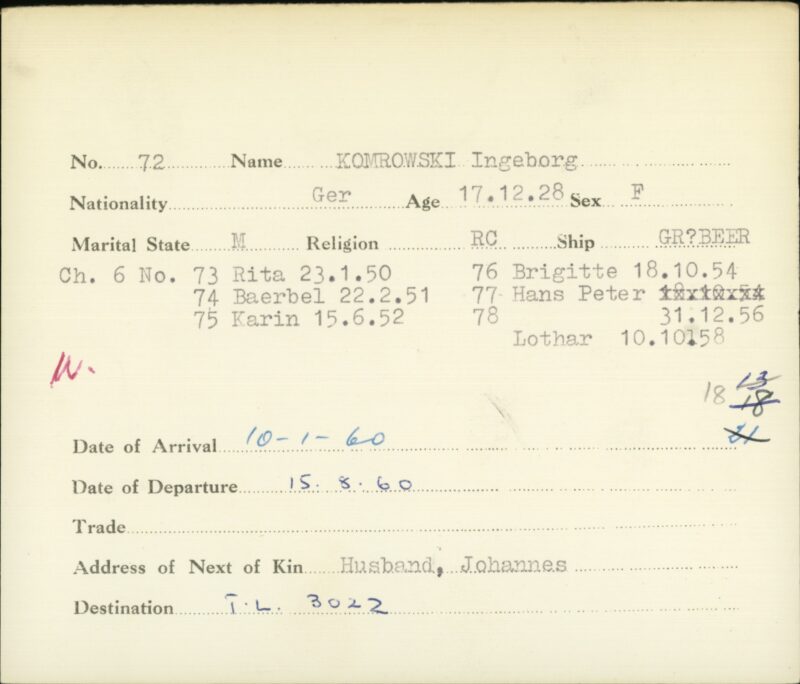 No. 72 Name KOMROWSKI Ingeborg
Nationality Ger Age 17.12.28 Sex F
Marital State M Religion RC Ship GR?BEER
Ch. 6 No. 73 Rita 23.1.50 76 Brigitte 18.10.54
74 Baerbel 22.2.51 77 Hans Peter
75 Karin 15.6.52 78 31.12.56
Lothar 10.10.58
W.
18 13
18
21
Date of Arrival 10-1-60
Date of Departure 15.8.60
Trade
Address of Next of Kin Husband, Johannes
Destination T.L. 3022